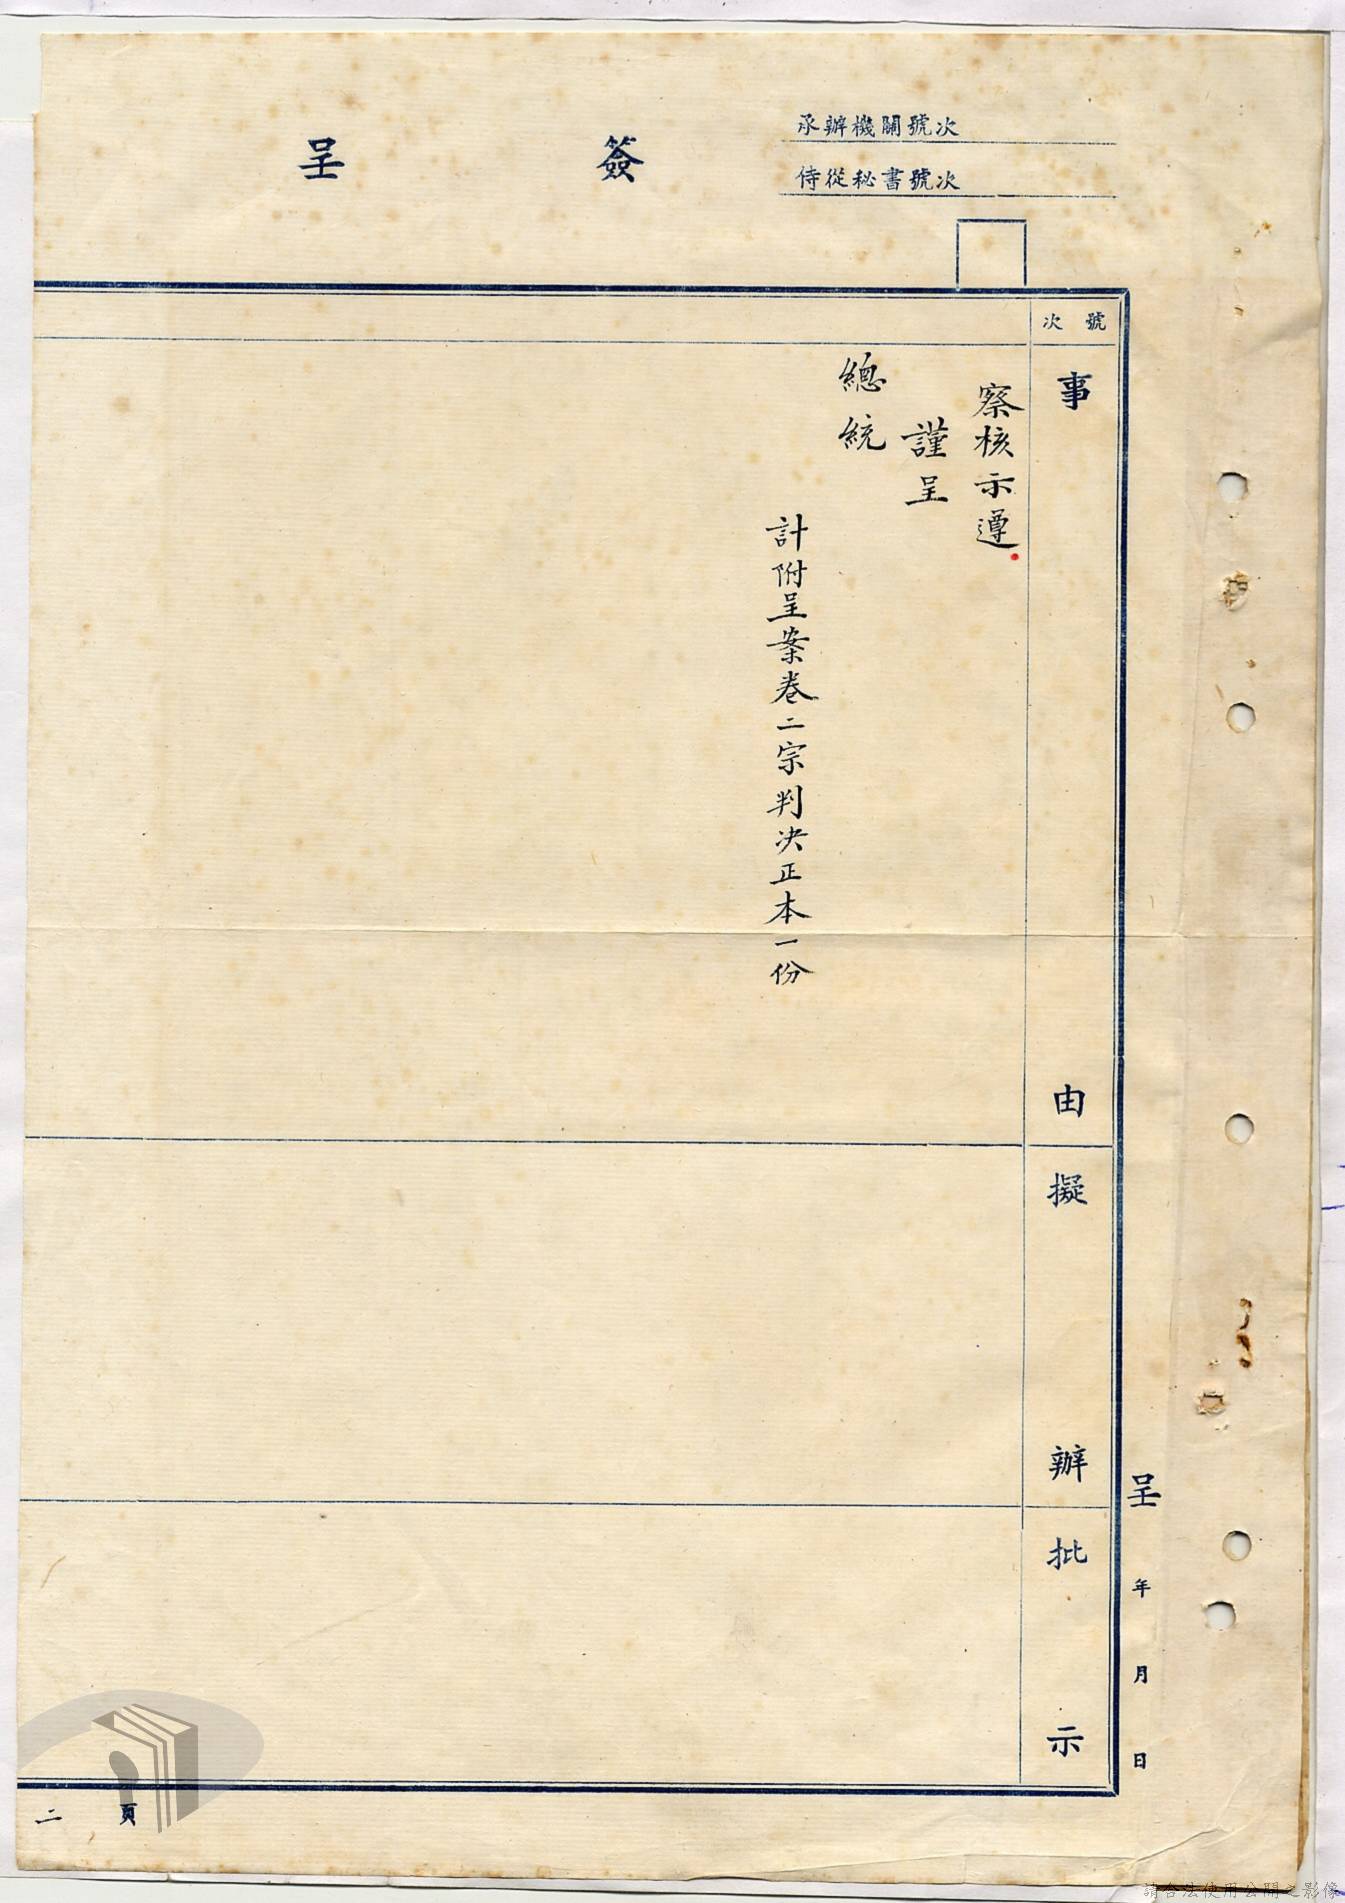 簽呈
承辦機關號次
侍從秘書號次
號次
事由
擬辦
批示
察核示遵
謹呈
總統
計附呈案卷二宗判決正本一份
呈 年 月 日
頁二
請合法使用公開之影像